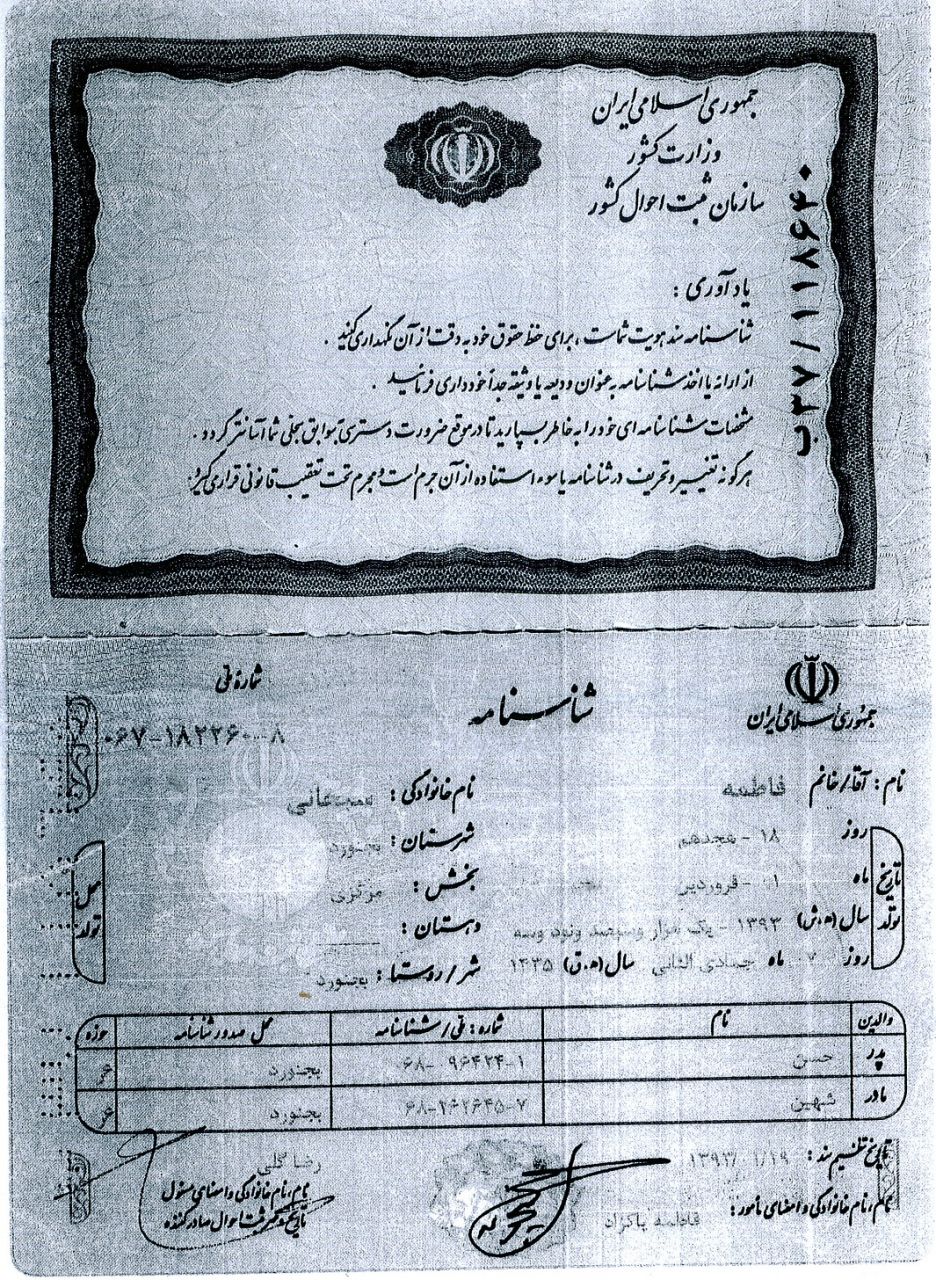 جمهوری اسلامی ایران
وزارت کشور
سازمان ثبت احوال کشور
ب۲۷/۱۱۸۶۴۰
یادآوری :
شناسنامه سند هویت شماست ، برای حفظ حقوق خود به دقت از آن نگهداری کنید .
از ارائه یا اخذ شناسنامه به عنوان ودیعه یا وثیقه جداً خودداری فرمائید .
مشخصات شناسنامه ای خود را به خاطر بسپارید تا در موقع ضرورت دسترسی به سوابق سجلی شما آسانتر گردد .
هرگونه تغییر و تحریف در شناسنامه یا سوء استفاده از آن جرم است و مجرم تحت تعقیب قانونی قرار می گیرد .
جمهوری اسلامی ایران
شناسنامه
شمارهٔ ملی
۰۶۷-۱۸۲۲۶۰-۸
نام : آقا/خانم فاطمه نام خانوادگی :
تاریخ تولد
روز ۱۸ - هجدهم
ماه ۰۱ - فروردین
سال (ه.ش) ۱۳۹۳ - یک هزار وسیصد ونود وسه
روز ۷ ماه جمادی الثانی سال (ه.ق) ۱۴۳۵
محل تولد
شهرستان : بجنورد
بخش : مرکزی
دهستان :
شهر/روستا : بجنورد
والدین نام شماره : ملی/شناسنامه محل صدور شناسنامه حوزه
پدر حسن ۰۶۸-۹۶۴۲۴-۱ بجنورد
مادر شهین ۰۶۸-۲۶۲۶۴۵-۷ بجنورد
تاریخ تنظیم سند : ۱۳۹۳/۰۱/۱۹
نام، نام خانوادگی و امضای مأمور : فاطمه پاکزاد
رضا گلی
نام، نام خانوادگی و امضای مسئول
تاریخ و مهر ثبت احوال صادر کننده